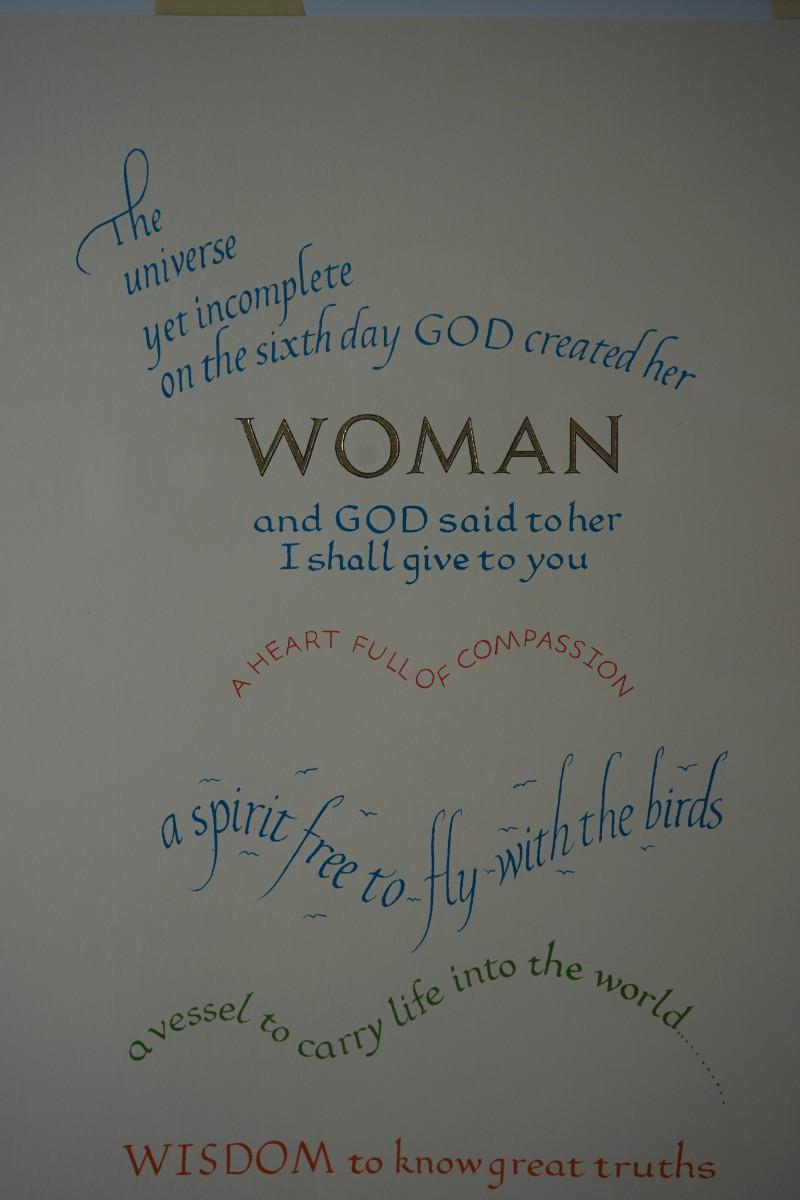 The
universe
yet incomplete
on the sixth day GOD created her
WOMAN
and GOD said to her
I shall give to you
A HEART FULL OF COMPASSION
a spirit free to fly with the birds
a vessel to carry life into the world........
WISDOM to know great truths